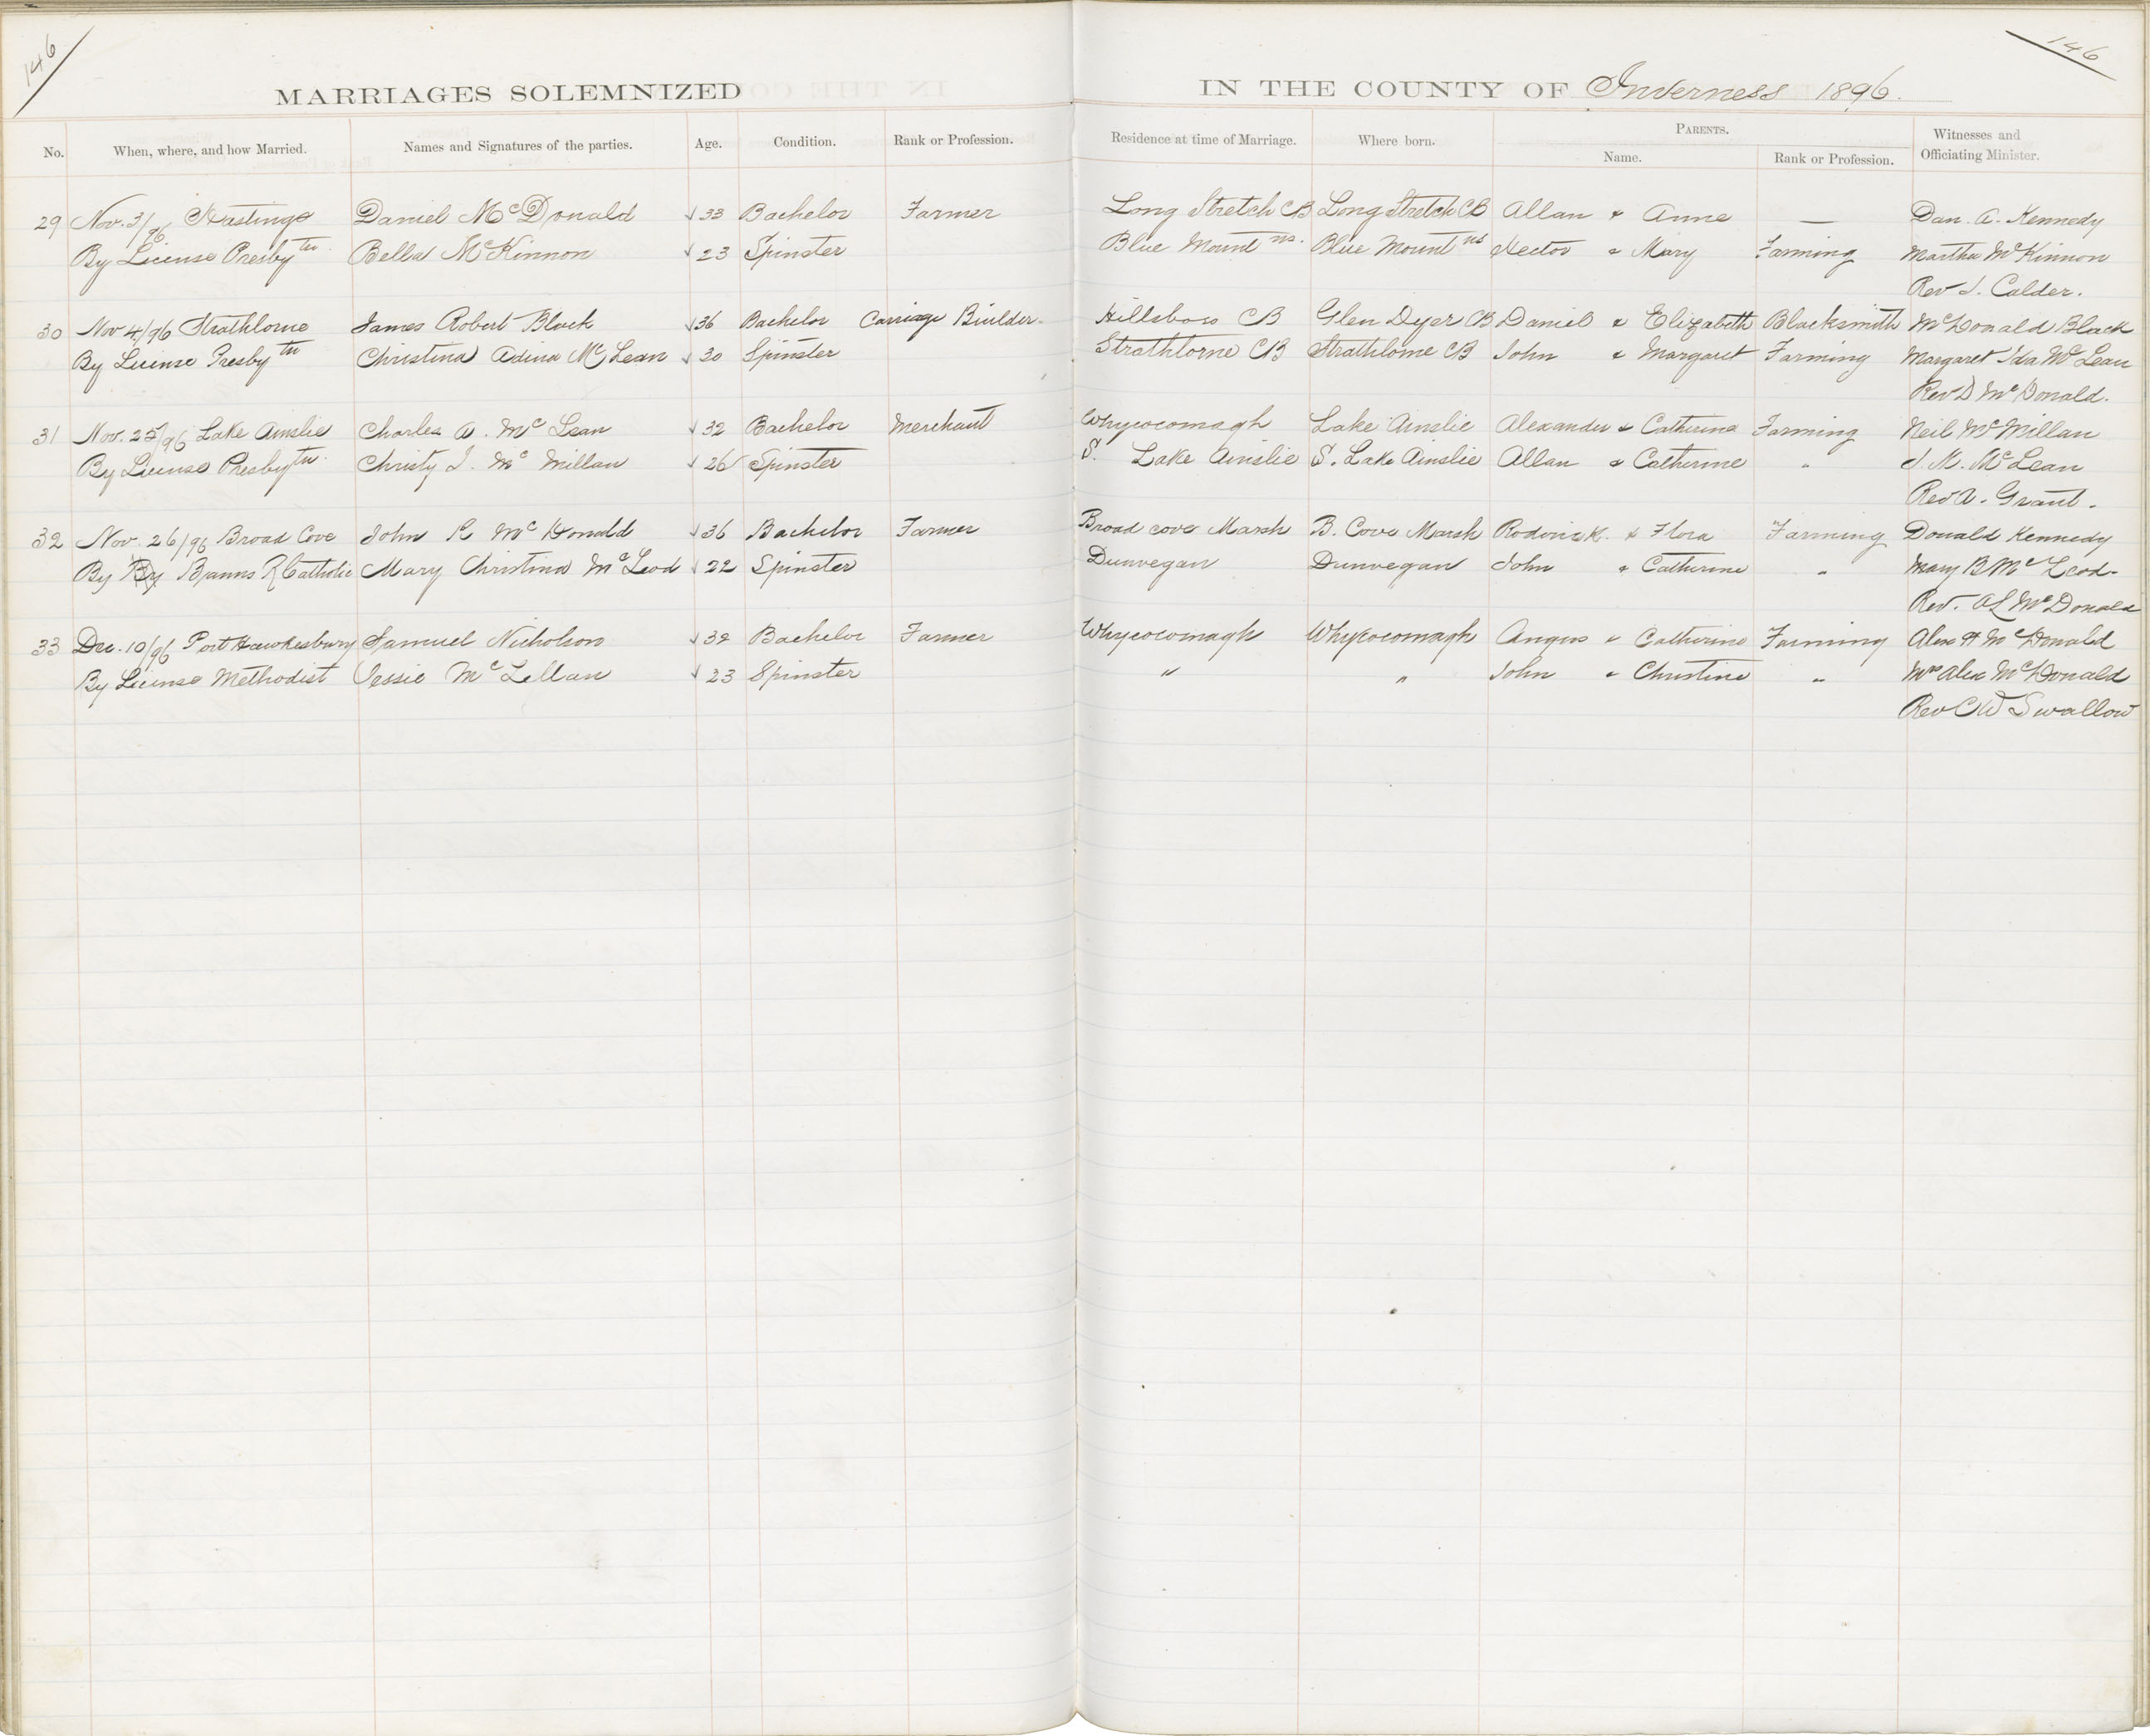 146
146
MARRIAGES SOLEMNIZED IN THE COUNTY OF Inverness 1896.
No. When, where, and how Married. Names and Signatures of the parties. Age. Condition. Rank or Profession. Residence at time of Marriage. Where born. PARENTS. Name. Rank or Profession. Witnesses and Officiating Minister.
29 Nov. 3/96 Hastings Daniel McDonald √33 Bachelor Farmer Long Stretch CB Long Stretch CB Allan & Anna — Dan. A. Kennedy
By License Presbytn. Bella McKinnon √23 Spinster Blue Mountns. Blue Mountns Hector & Mary Farming Martha McKinnon
Rev J. Calder.
30 Nov 4/96 Strathlorne James Robert Black √36 Bachelor Carriage Builder Hillsboro CB Glen Dyer CB Daniel & Elizabeth Blacksmith McDonald Black
By License Presbytn Christina Adina McLean √30 Spinster Strathlorne CB Strathlorne CB John & Margaret Farming Margaret Ida McLean
Rev D McDonald.
31 Nov. 25/96 Lake Ainslie Charles A. McLean √32 Bachelor Merchant Whycocomagh Lake Ainslie Alexander & Catherine Farming Neil McMillan
By License Presbytn. Christy J. McMillan √26 Spinster S. Lake Ainslie S. Lake Ainslie Allan & Catherine " J. M. McLean
Rev A. Grant.
32 Nov. 26/96 Broad Cove John R McDonald √36 Bachelor Farmer Broad cove Marsh B. Cove Marsh Roderick & Flora Farming Donald Kennedy
By By Banns R Catholic Mary Christina McLeod √22 Spinster Dunvegan Dunvegan John & Catherine " Mary B McLeod
Rev. A L McDonald
33 Dec. 10/96 Port Hawkesbury Samuel Nicholson √32 Bachelor Farmer Whycocomagh Whycocomagh Angus & Catherine Farming Alex H McDonald
By License Methodist Jessie McLellan √23 Spinster " " John & Christina " Mrs Alex McDonald
Rev C W Swallow